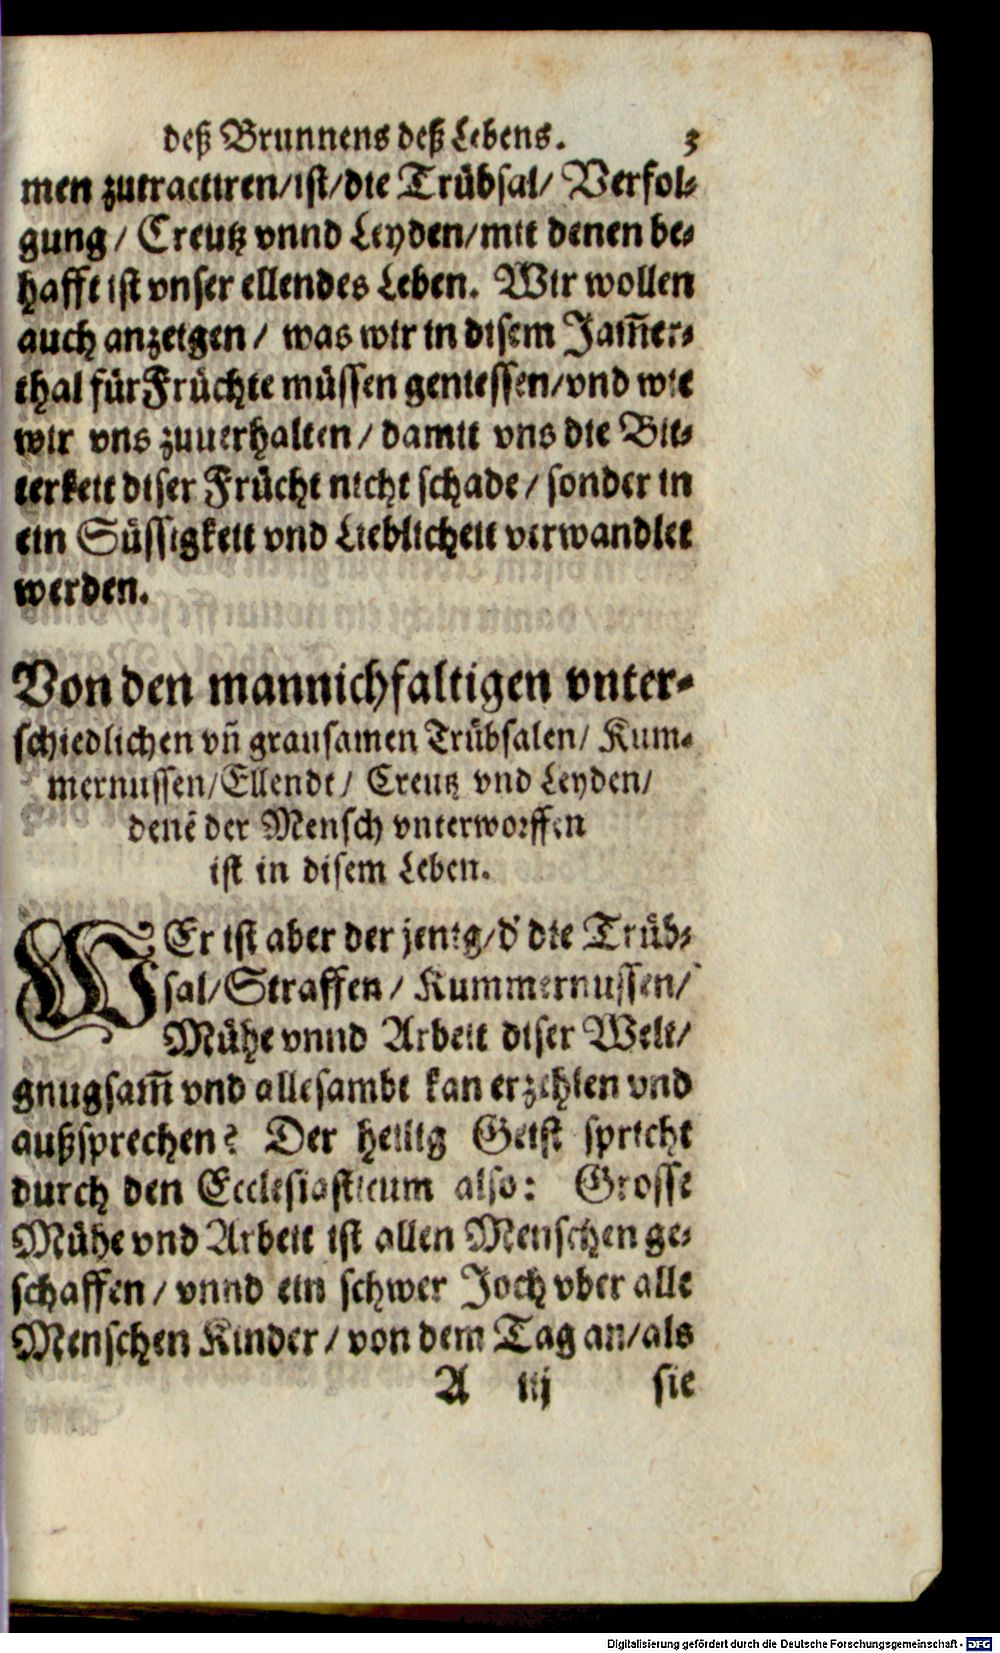 deß Brunnens deß Lebens. 3
men zutractiren/ist/die Trübsal/ Verfol-
gung/ Creutz vnnd Leyden/mit denen be-
hafft ist vnser ellendes Leben. Wir wollen
auch anzeigen/ was wir in disem Jam̃er-
thal für Früchte müssen geniessen/vnd wie
wir vns zuuerhalten/damit vns die Bit-
terkeit diser Frücht nicht schade/sonder in
ein Süssigkeit vnd Lieblicheit verwandlet
werden.
Von den mannichfaltigen vnter-
schiedlichen vn̄ grausamen Trübsalen/ Kum-
mernussen/Ellendt/ Creutz vnd Leyden/
denē der Mensch vnterworffen
ist in disem Leben.
WEr ist aber der jenig/d' die Trüb-
sal/Straffen/ Kummernussen/
Mühe vnnd Arbeit diser Welt/
gnugsam̃ vnd allesambt kan erzehlen vnd
außsprechen? Der heilig Geist spricht
durch den Ecclesiasticum also: Grosse
Mühe vnd Arbeit ist allen Menschen ge-
schaffen/ vnnd ein schwer Joch vber alle
Menschen Kinder/von dem Tag an/als
A iij sie
Digitalisierung gefördert durch die Deutsche Forschungsgemeinschaft - DFG